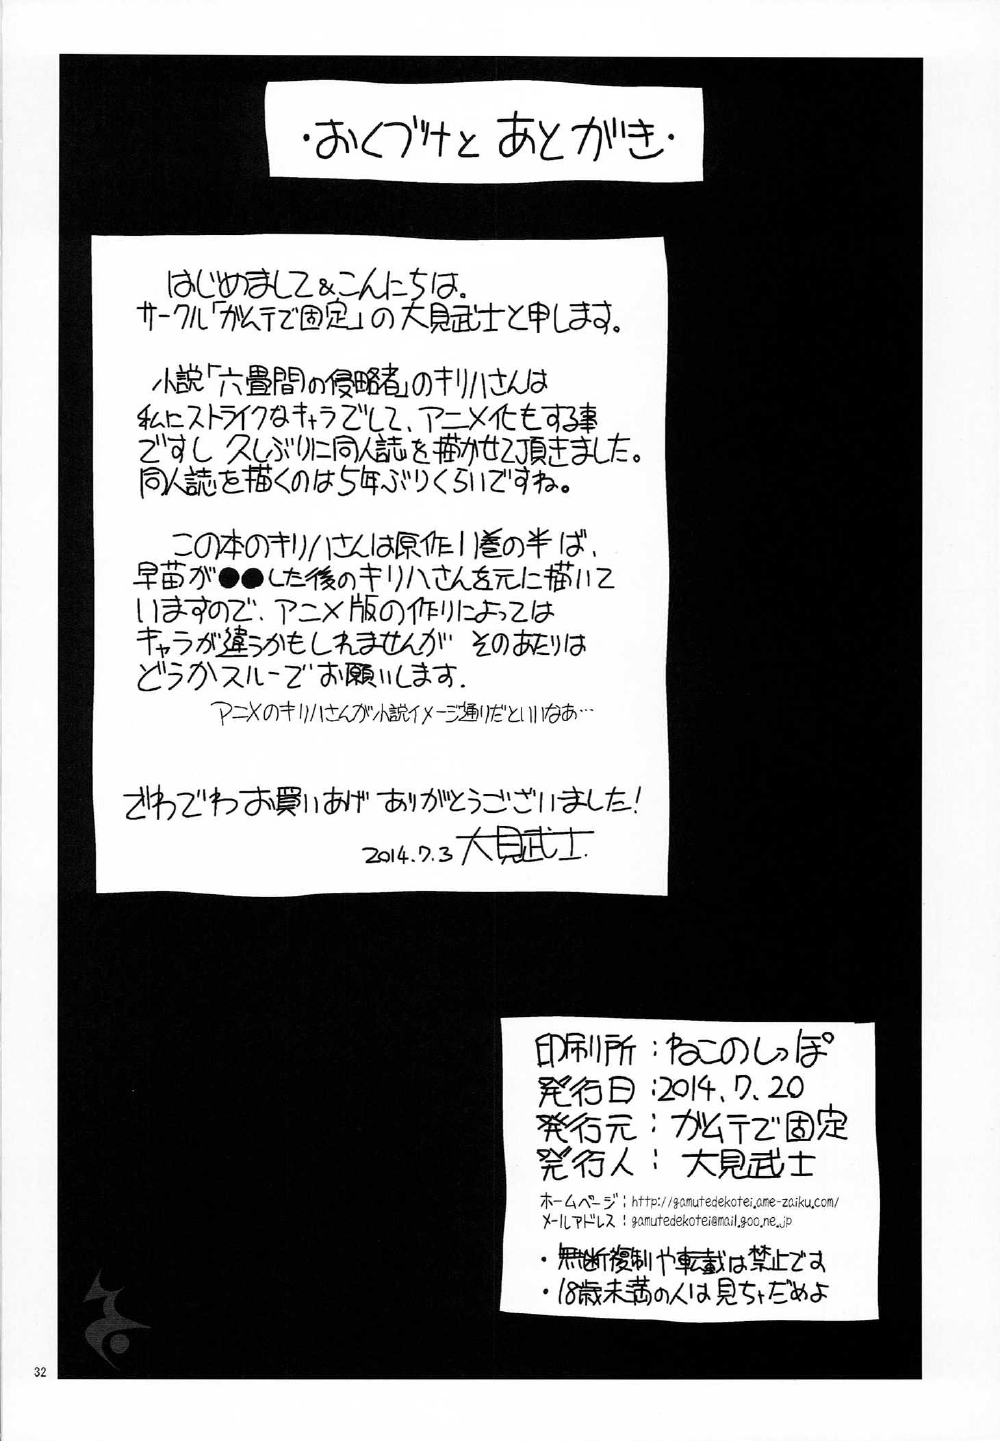 ・おくづけと あとがき・
はじめまして&こんにちは。
サークル「ガムテで固定」の大見武士と申します。
小説「六畳間の侵略者」のキリハさんは
私にストライクなキャラでして、アニメ化もする事
ですし 久しぶりに同人誌を描かせて頂きました。
同人誌を描くのは5年ぶりくらいですね。
この本のキリハさんは原作11巻の半ば、
早苗が●●した後のキリハさんを元に描いて
いますので、アニメ版の作りによっては
キャラが違うかもしれませんが そのあたりは
どうかスルーでお願いします.
アニメのキリハさんが小説イメージ通りだといいなあ…
でわでわお買いあげ ありがとうございました!
2014.7.3 大見武士.
印刷所:ねこのしっぽ
発行日:2014.7.20
発行元:ガムテで固定
発行人: 大見武士
ホームページ:http://gamutedekotei.ame-zaiku.com/
メールアドレス:gamutedekotei@mail.goo.ne.jp
・無断複製や転載は禁止です
・18歳未満の人は見ちゃだめよ
32